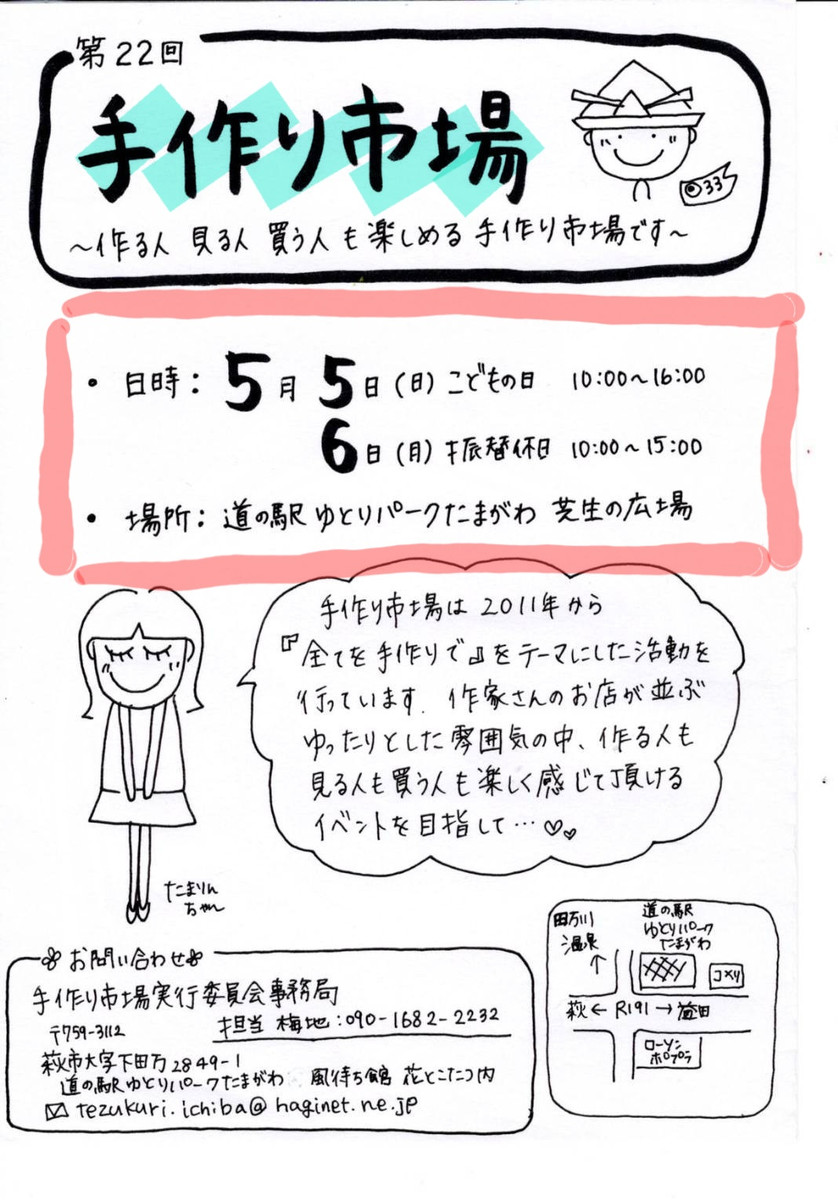 第22回
手作り市場
～作る人 見る人 買う人も楽しめる 手作り市場です～
33
・ 日時： 5月 5日（日）こどもの日 10:00～16:00
6日（月）振替休日 10:00～15:00
・ 場所： 道の駅 ゆとりパークたまがわ 芝生の広場
手作り市場は 2011年から
『全てを手作りで』をテーマにした活動を
行っています. 作家さんのお店が並ぶ
ゆったりとした雰囲気の中、作る人も
見る人も買う人も楽しく感じて頂ける
イベントを目指して…♡♡
たまりん
ちゃん
お問い合わせ
手作り市場実行委員会事務局
担当 梅地：090-1682-2232
〒759-3112
萩市大字下田万2849-1
道の駅ゆとりパークたまがわ 風待ち館 花とこたつ内
✉ tezukuri.ichiba@haginet.ne.jp
田万川
温泉
↑
道の駅
ゆとりパーク
たまがわ
コメリ
萩 ← R191 → 益田
ローソン
ポプラ